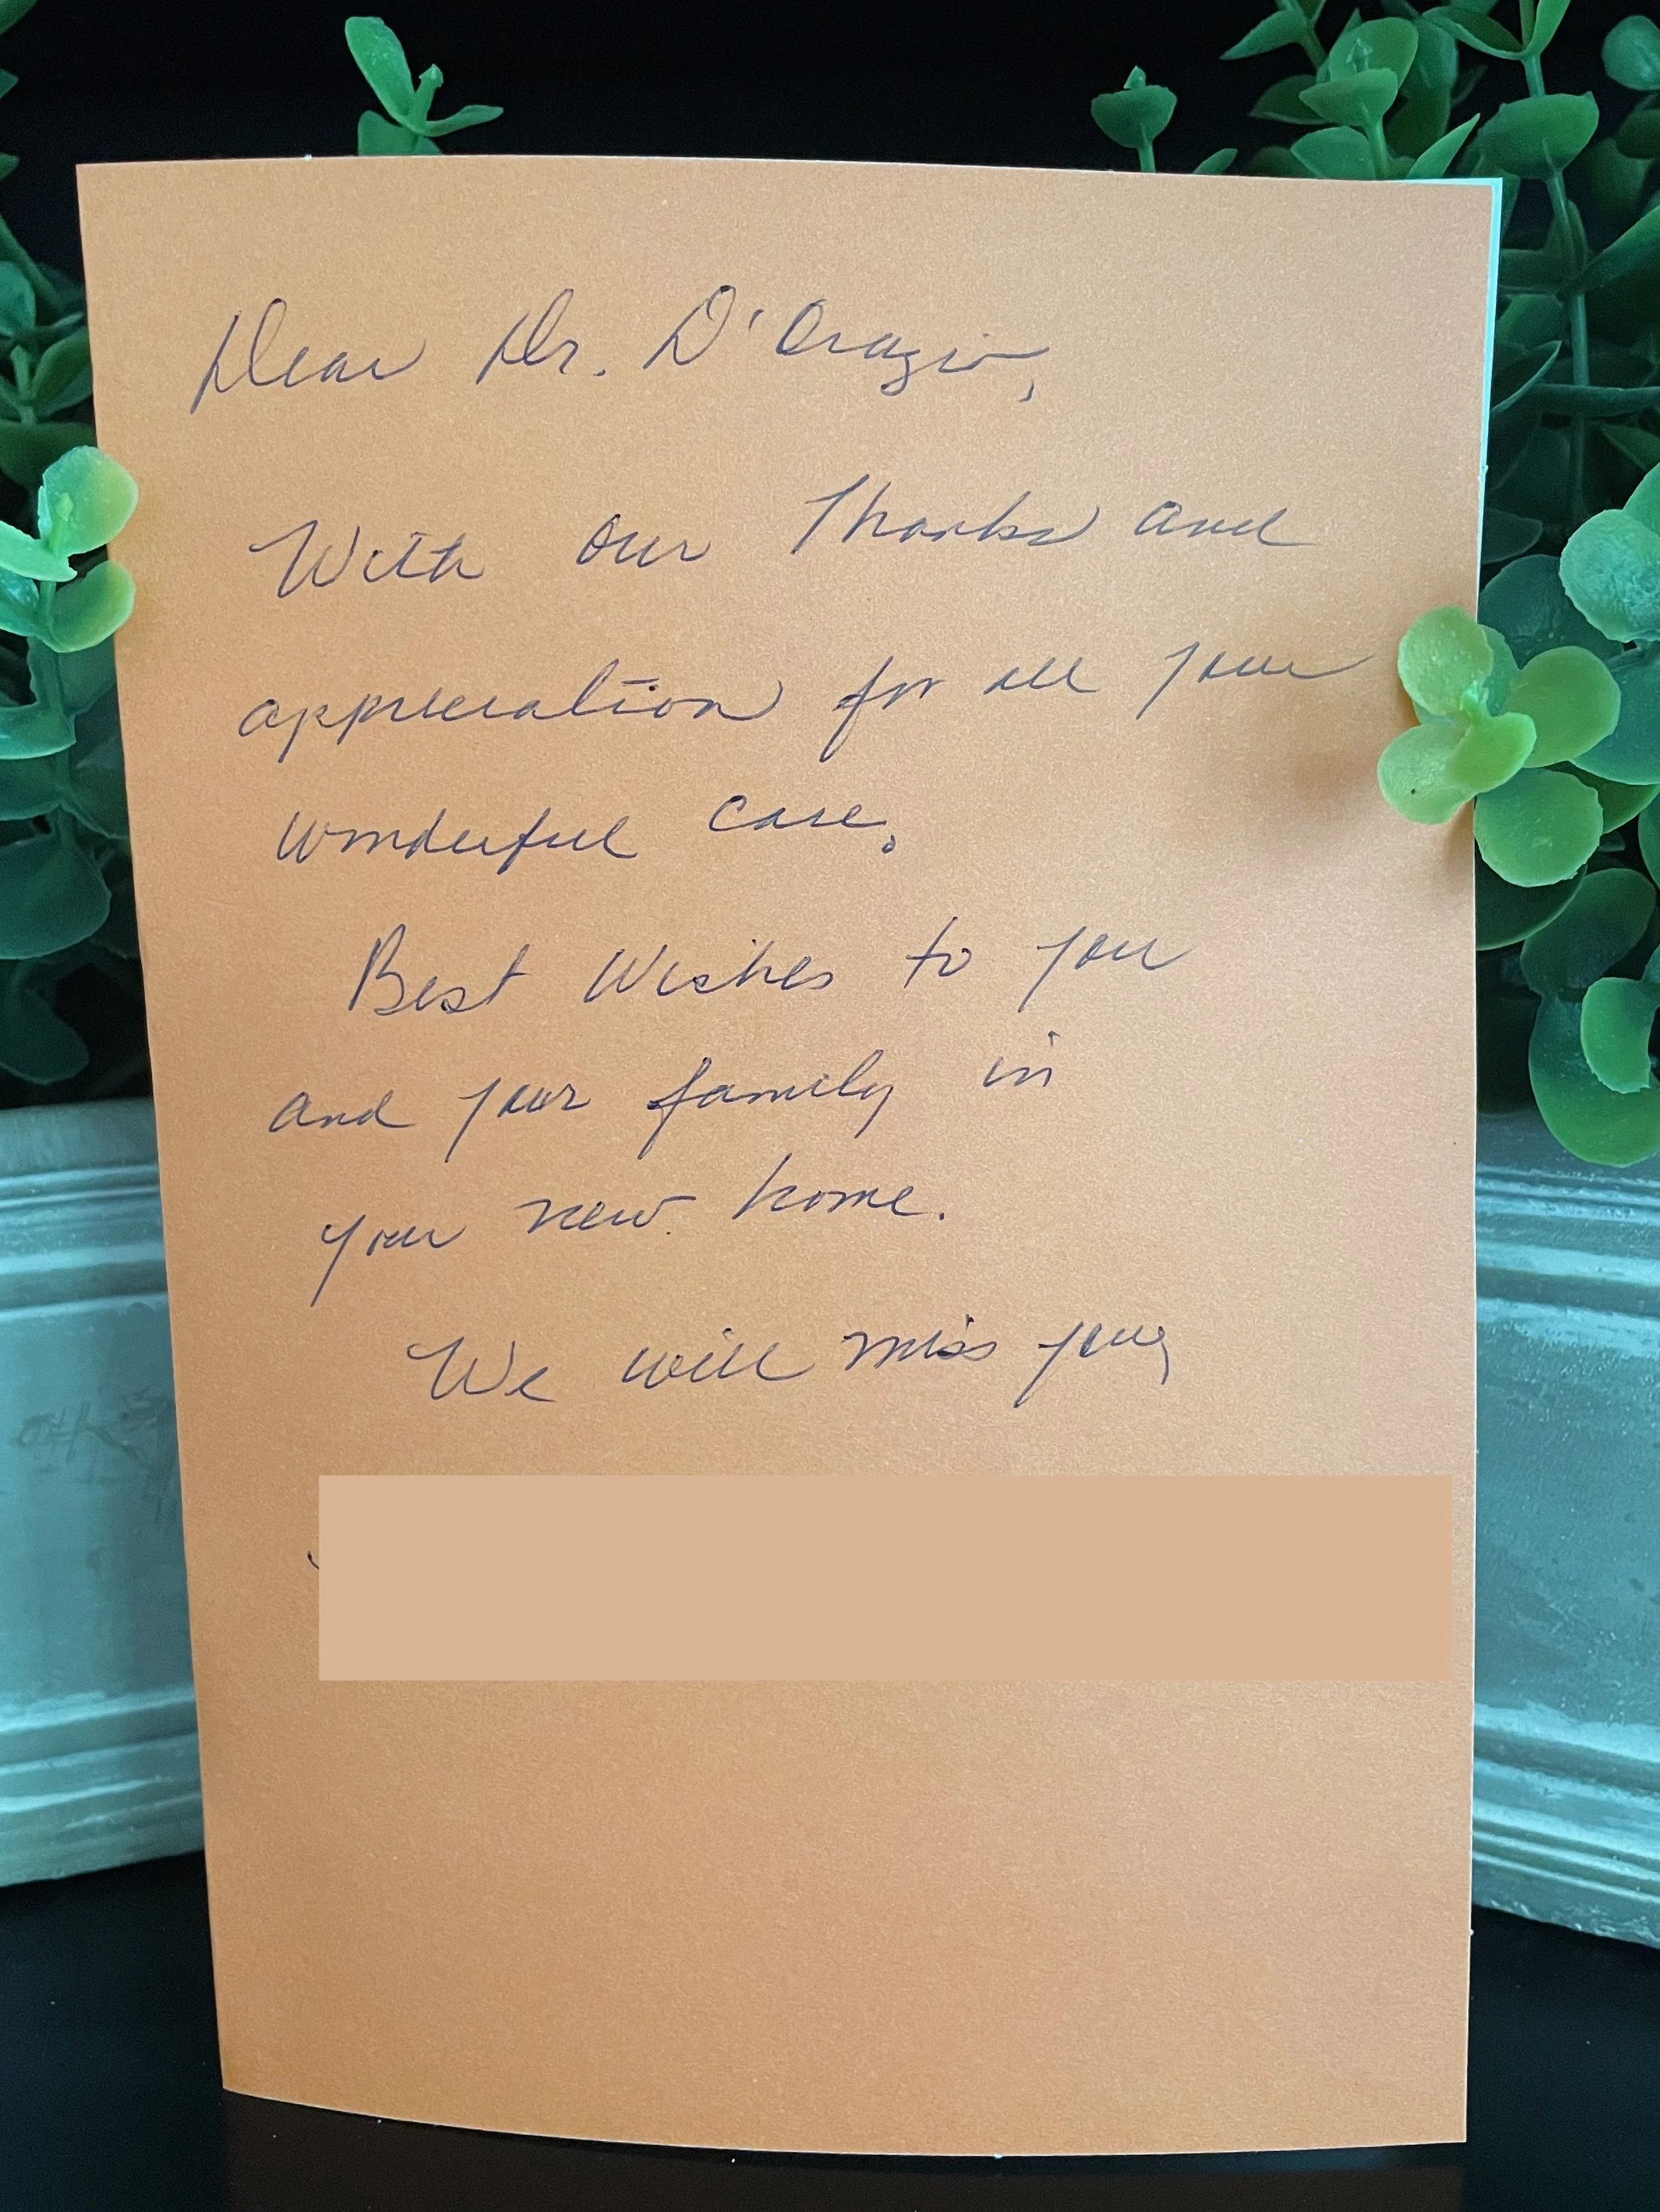 Dear Dr. D'Orazio,
With our Thanks and
appreciation for all your
wonderful care.
Best Wishes to you
and your family in
your new home.
We will miss you,